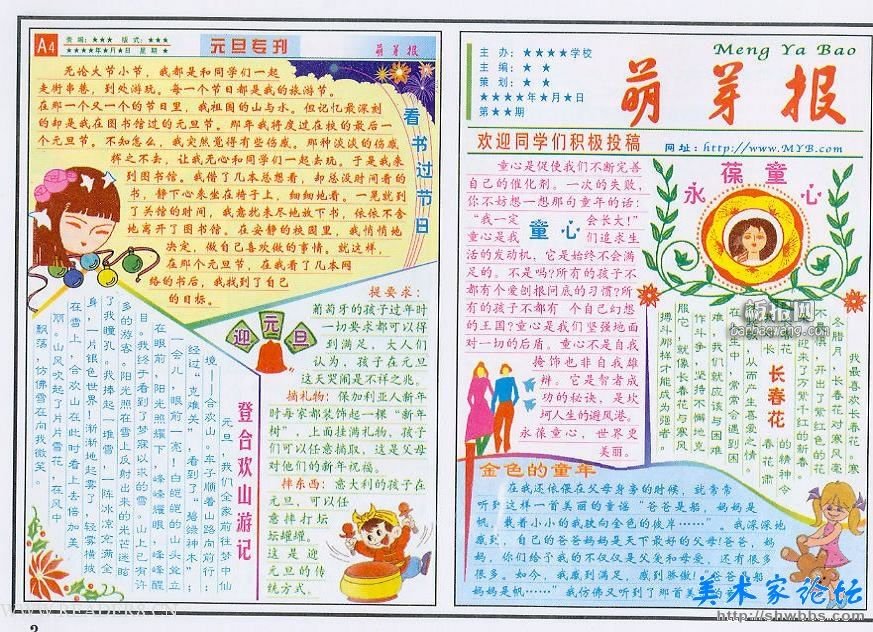 A4
责编：★★★ 版式：★★★
★★★★年★月★日 星期 ★
元旦专刊
萌芽报
看书过节日
无论大节小节，我都是和同学们一起
走街串巷，到处游玩。每一个节日都是我的旅游节。
在那一个又一个的节日里，我祖国的山与水。但记忆最深刻
的却是我在图书馆过的元旦节。那年我将度过在校的最后一
个元旦节。不知怎么，我突然觉得有些伤感。那种淡淡的伤感
挥之不去，让我无心和同学们一起去玩。于是我来
到图书馆。我借了几本总想看，却总没时间看的
书，静下心来坐在椅子上，细细地看。一晃就到
了关馆的时间，我意犹未尽地放下书，依依不舍
地离开了图书馆。在安静的校园里，我悄悄地
决定，做自己喜欢做的事情。就这样，
在那个元旦节，在我看了几本闲
书后，我找到了自己
的目标。
登合欢山游记
元旦，我们全家前往梦中仙
境——合欢山。车子顺着山路向前行；
经过“克难关”，看到了“碧绿神木”；
一会儿，眼前一亮！白皑皑的山头耸立
在眼前，阳光照耀下，峰峰耀眼，峰峰醒
目。我终于看到了梦寐以求的雪，山上已有许
多的游客。阳光照在雪上反射出来的光芒眩
了我瞳孔。我捧起一堆雪，一阵冰凉充满全
身，一片银色世界！渐渐地起雾了，轻雾横披
在雪上，合欢山在此时看上去倍加美
丽。山风吹起了片片雪花，在风中
飘荡，仿佛雪在向我微笑。
迎元旦
提要求：
葡萄牙的孩子过年时
一切要求都可以得
到满足，大人们
认为，孩子在元旦
这天哭闹是不祥之兆。
摘礼物：保加利亚人新年
时每家都装饰起一棵“新年
树”，上面挂满礼物，孩子
们可以任意摘取，这是父母
对他们的新年祝福。
摔东西：意大利的孩子在
元旦，可以任
意摔打坛
坛罐罐。
这是迎
元旦的传
统方式。
主办：★★★★学校
主编：★ ★
策划：★ ★
★★★★年★月★日
第★★期
Meng Ya Bao
萌芽报
欢迎同学们积极投稿
网址：http://www.MYB.com
永葆童心
童心
童心是促使我们不断完善
自己的催化剂。一次的失败，
你不妨想一想那句童年的话：
“我一定会长大！”
童心是我们追求生
活的发动机，它是始终不会满
足的。不是吗？所有的孩子不
都有个爱刨根问底的习惯？所
有的孩子不都有个自己幻想
的王国？童心是我们坚强地面
对一切的后盾。童心不是自我
掩饰也非自我雄
辩。它是智者成
功的秘诀，是坎
坷人生的避风港。
永葆童心，世界更
美丽。
长春花
我最喜欢长春花。寒
冬腊月，长春花对寒风毫
不惧，开出了紫红色的花
迎来了万紫千红的新春。
春花的精神令
春花肃
从而产生喜爱之情。
生中，常常会遇到困
难，我们就应该与困难
作斗争，坚持不懈地克
服它，就像长春花与寒风
搏斗那样才能成为强者。
金色的童年
在我还依偎在父母身旁的时候，就常常
听到这样一首美丽的童谣“爸爸是船，妈妈是
帆，载着小小的我驶向金色的彼岸……”。我深深地
感到，自己的爸爸妈妈是天下最好的父母！爸爸，妈
妈，你们给予我的不仅仅是父爱和母爱，还有很多
很多。如今，我感到满足，感到骄傲！“爸爸是船
妈妈是帆……”我仿佛又听到了那首美
板报网
banbaowang.com
美术家论坛
http://shwbhs.com
2